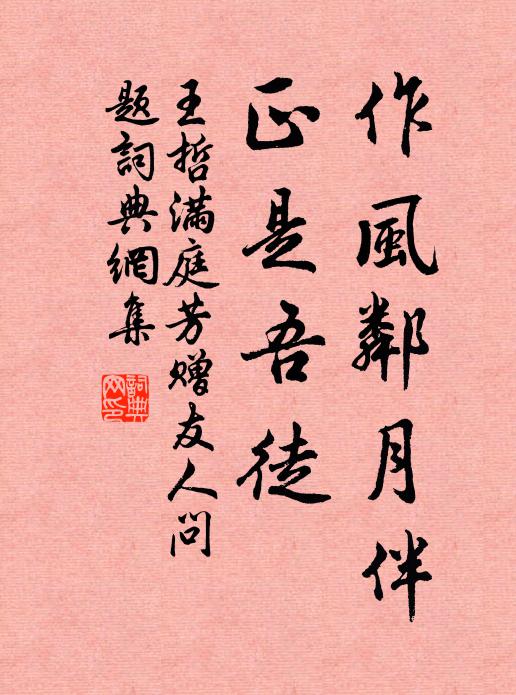 作風鄰月伴
正是吾徒
王哲滿庭芳赠友人問
題詞典網集
詞典網印